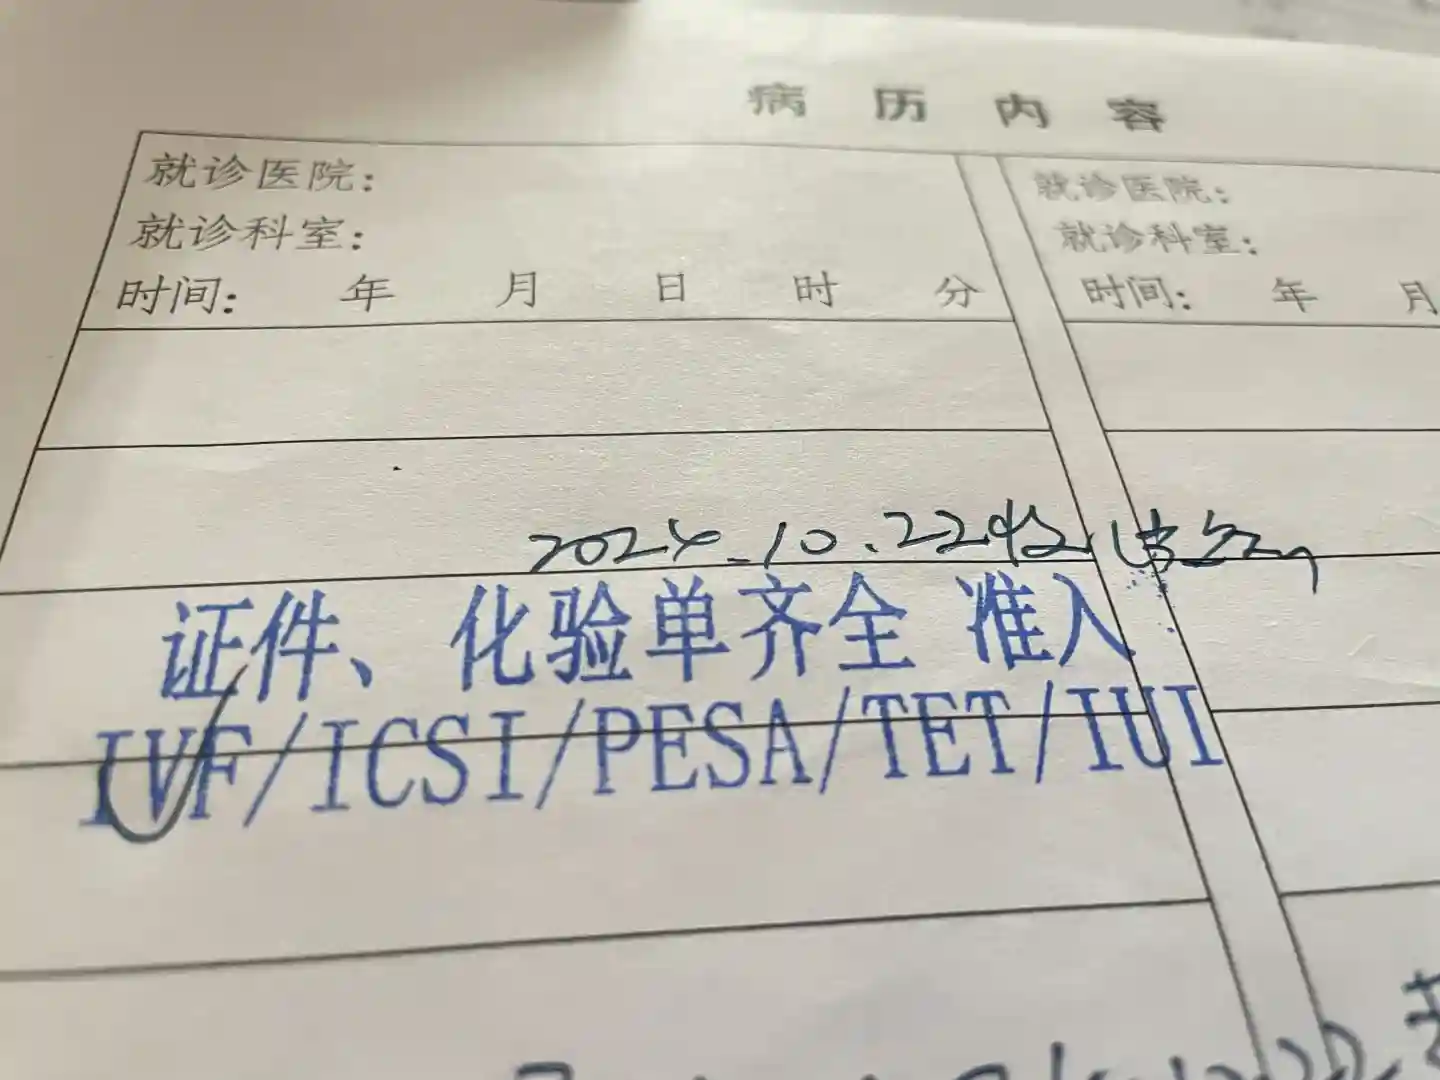 病历内容
就诊医院:
就诊科室:
时间: 年 月 日 时 分
就诊医院:
就诊科室:
时间: 年 月
2024.10.22收
证件、化验单齐全 准入
IVF/ICSI/PESA/TET/IUI